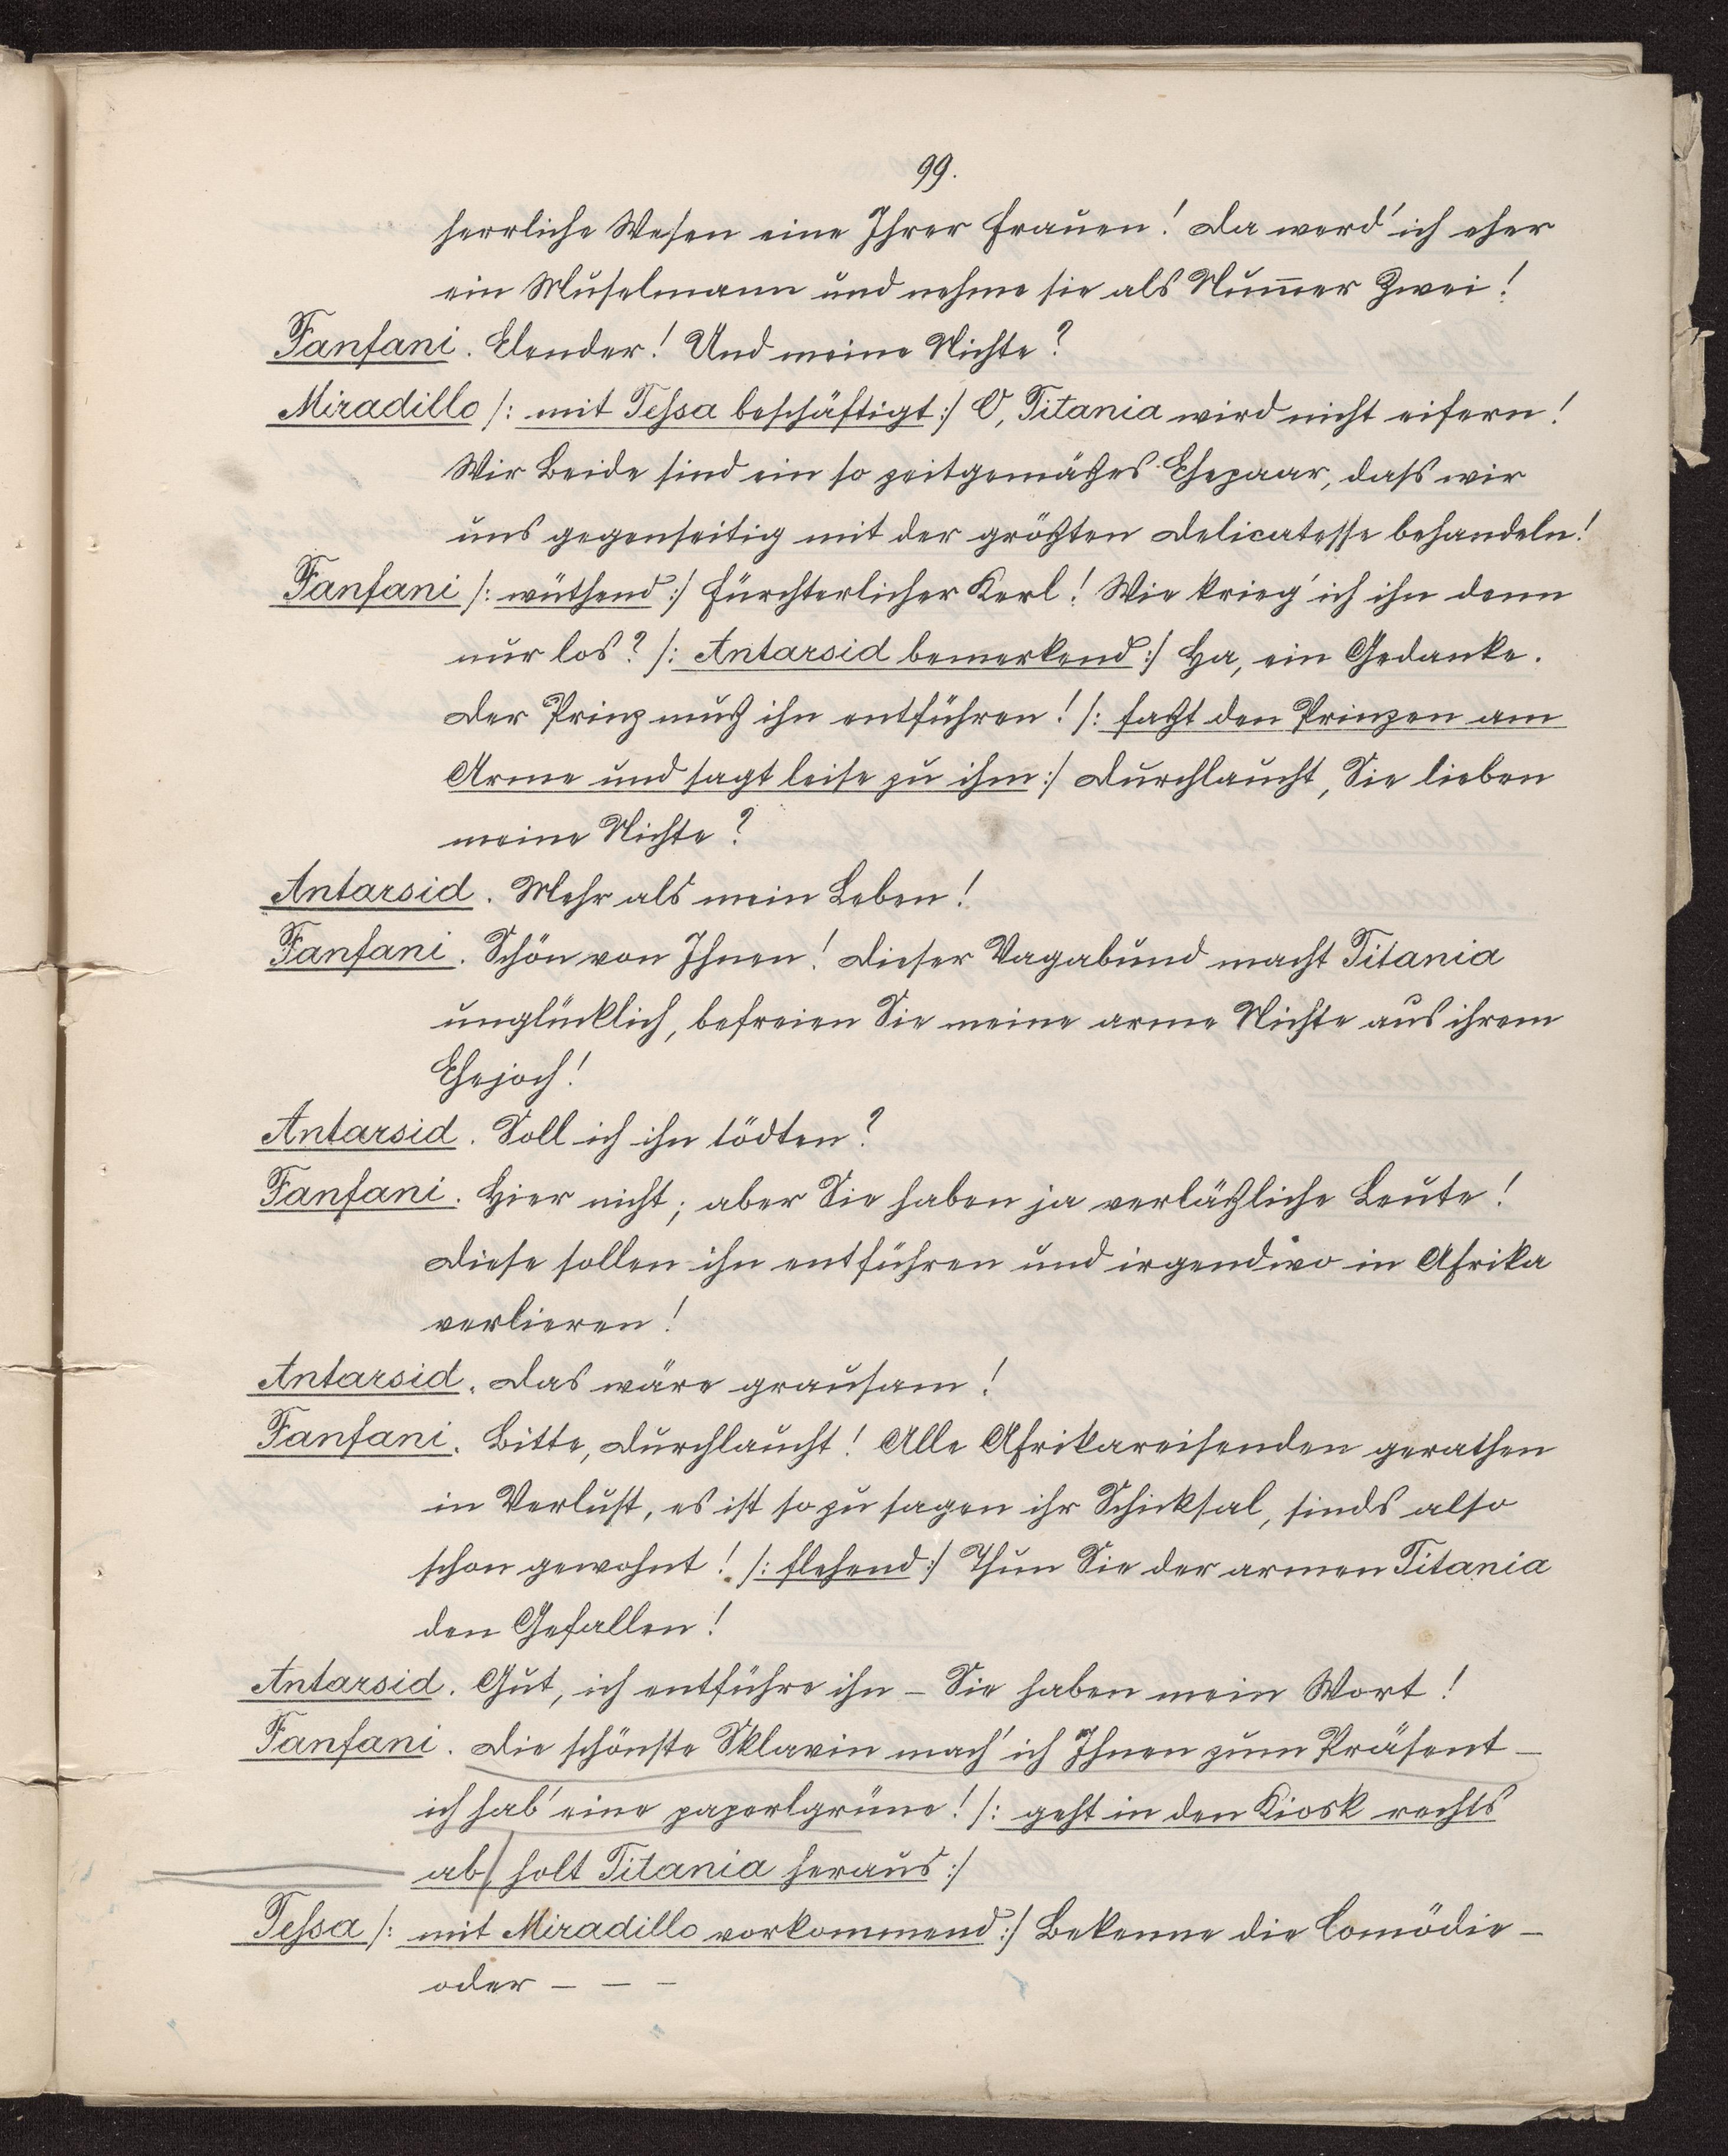 99.
herrliche Wesen eine Ihrer Frauen! Da werd' ich eher
ein Muselmann und nehme sie als Num̅er Zwei!
Fanfani. Elender! Und meine Nichte?
Miradillo /: mit Teßa beschäftigt :/ O, Titania wird nicht eifern!
Wir Beide sind ein so zeitgemäßes Ehepaar, dass wir
uns gegenseitig mit der größten Delicatesse behandeln!
Fanfani /: wüthend :/ Fürchterlicher Kerl! Wie krieg' ich ihn denn
nur los? /: Antarsid bemerkend :/ Ha, ein Gedanke.
Der Prinz muß ihn entführen! /: faßt den Prinzen am
Arme und sagt leise zu ihm :/ Durchlaucht, Sie lieben
meine Nichte?
Antarsid. Mehr als mein Leben!
Fanfani. Schön von Ihnen! Dieser Vagabund macht Titania
unglücklich, befreien Sie meine arme Nichte aus ihrem
Ehejoch!
Antarsid. Soll ich ihn tödten?
Fanfani. Hier nicht; aber Sie haben ja verläßliche Leute!
Diese sollen ihn entführen und irgendwo in Afrika
verlieren!
Antarsid. Das wäre grausam!
Fanfani. Bitte, Durchlaucht! Alle Afrikareisenden gerathen
in Verlust, es ist so zu sagen ihr Schicksal, sinds also
schon gewohnt! /: flehend :/ Thun Sie der armen Titania
den Gefallen!
Antarsid. Gut, ich entführe ihn – Sie haben mein Wort!
Fanfani. Die schönste Sklavin mach' ich Ihnen zum Präsent –
ich hab' eine paperlgrüne! /: geht in den Kiosk rechts
ab, holt Titania heraus :/
Teßa /: mit Miradillo vorkommend :/ Bekenne die Comödie –
oder – – –